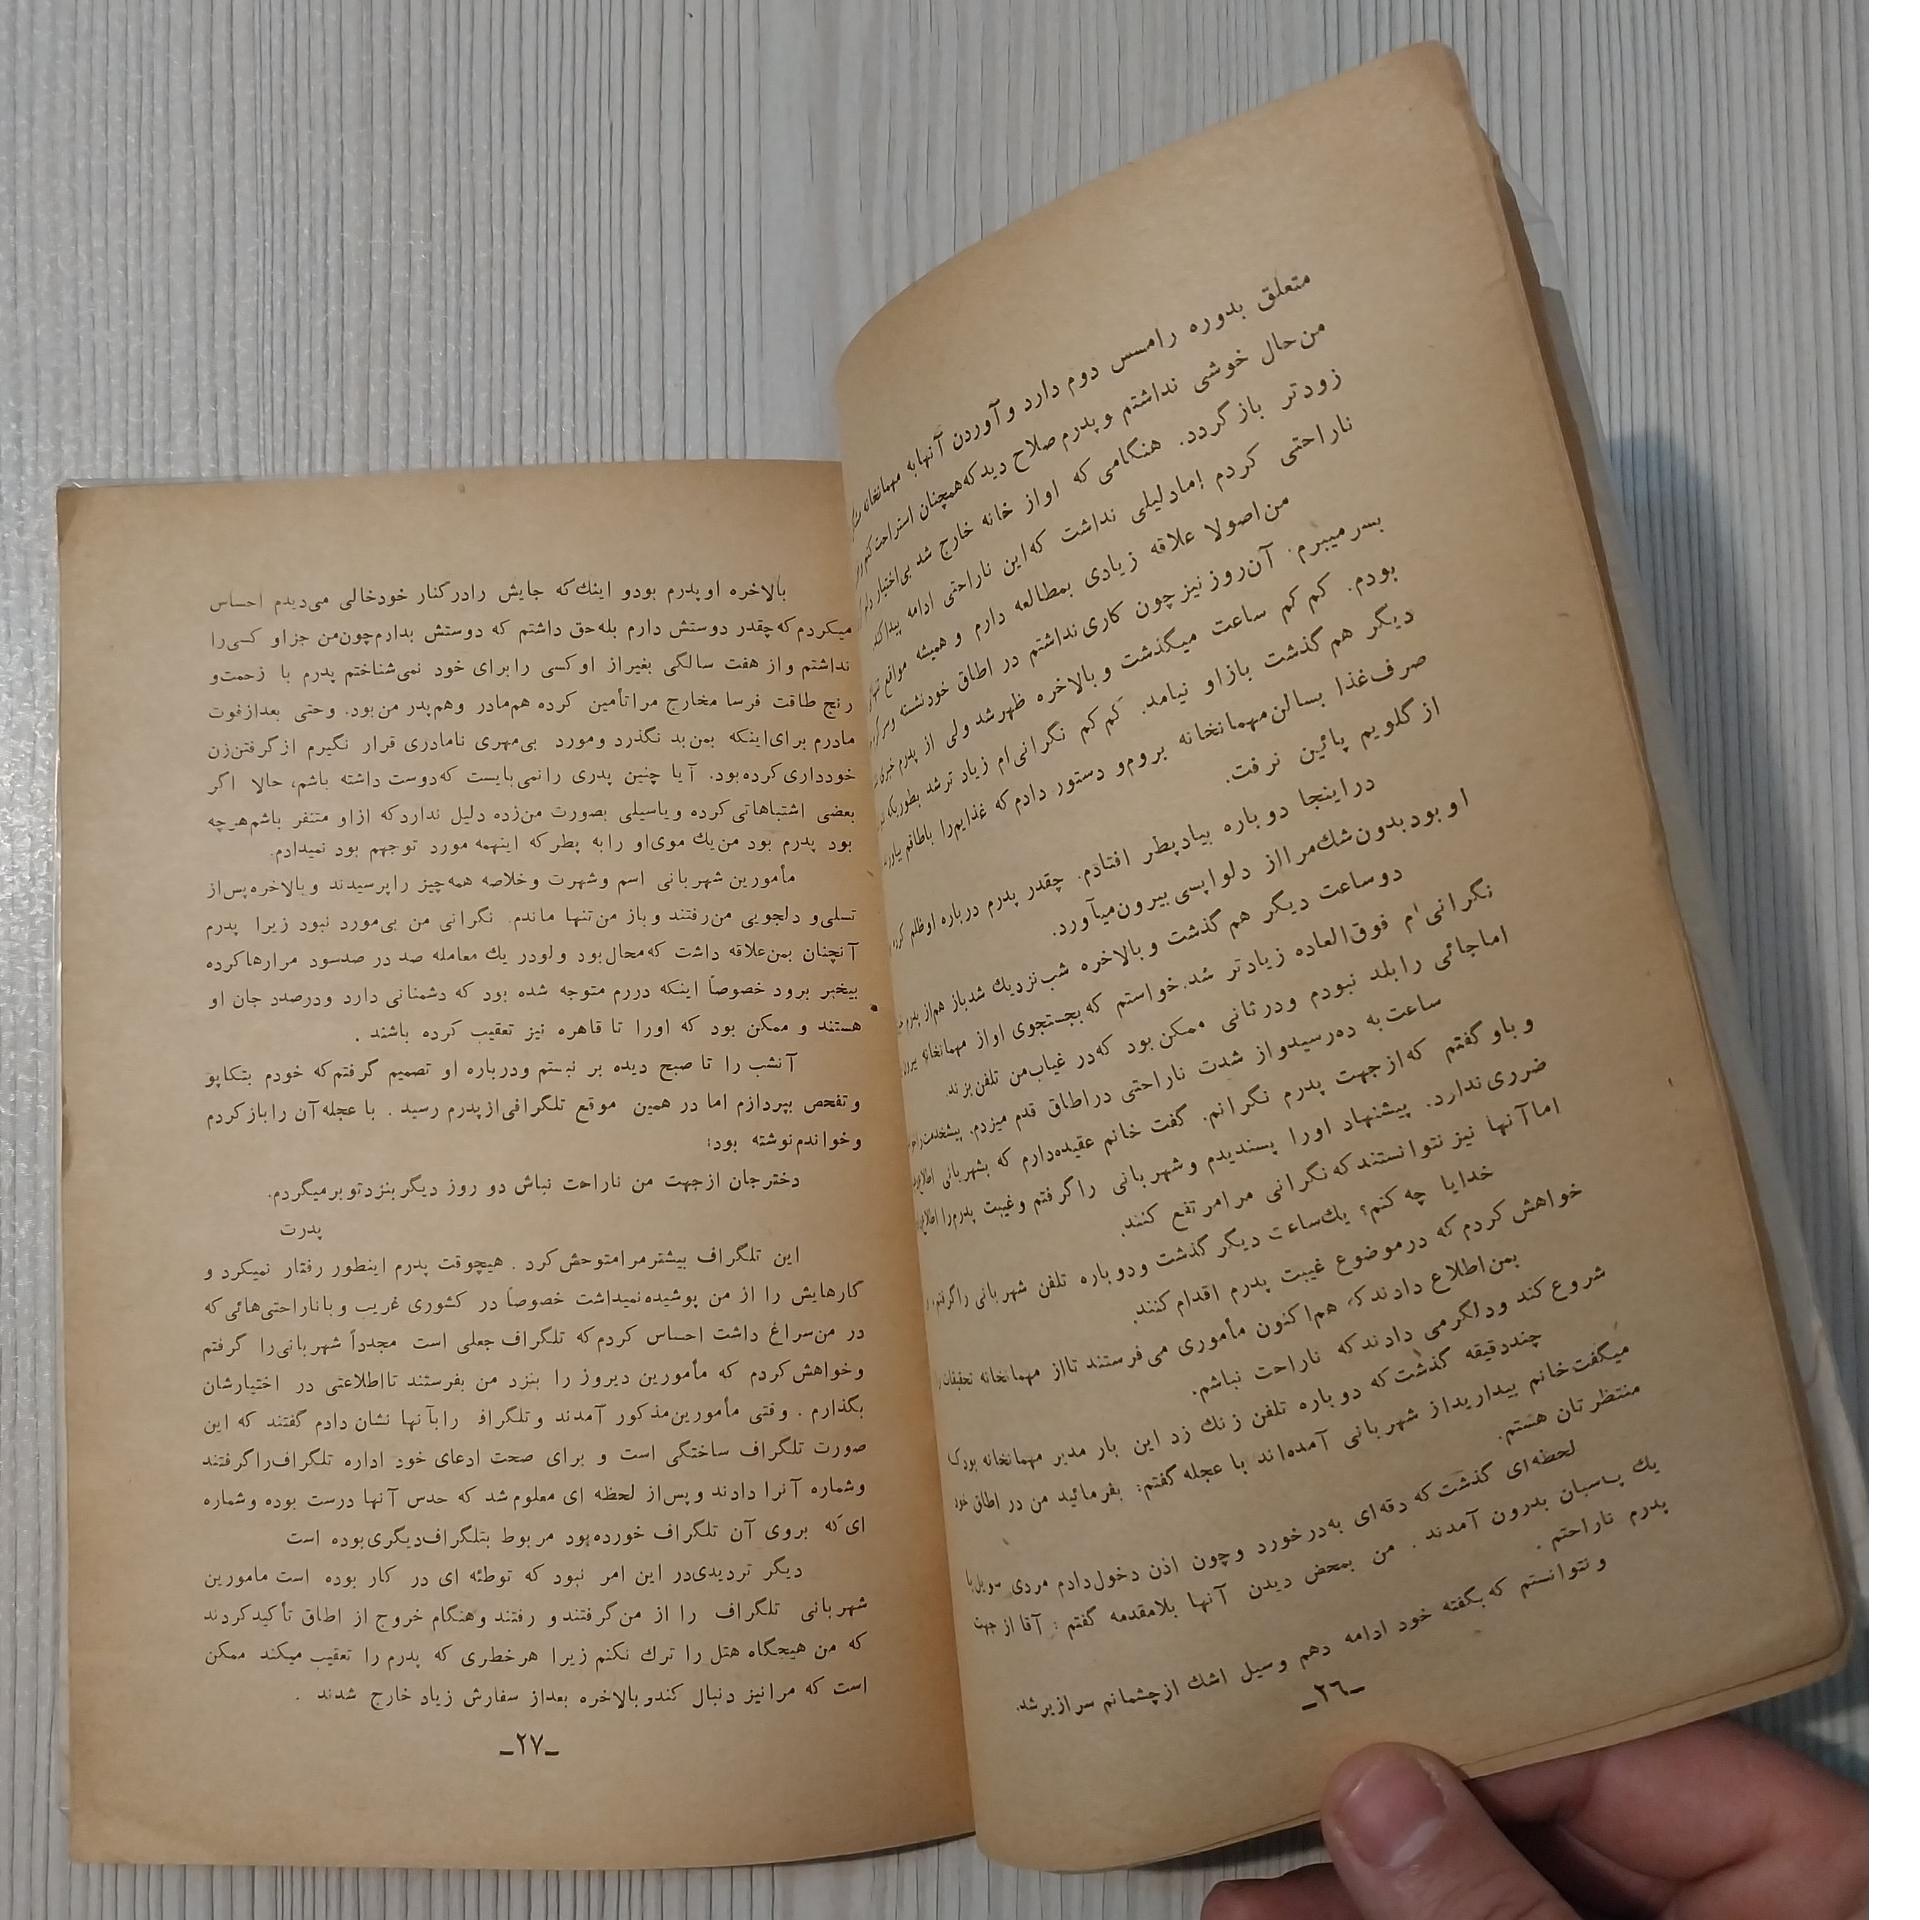 متعلق بدوره رامسس دوم دارد و آوردن آنها به مهمانخانه
من‌حال خوشی نداشتم و پدرم صلاح دید که همچنان استراحت کنم
زودتر بازگردد. هنگامی که او از خانه خارج شد بی‌اختیار
ناراحتی کردم اما دلیلی نداشت که این ناراحتی ادامه پیدا کند
من اصولا علاقه زیادی بمطالعه دارم و همیشه مواقع
بسر میبرم. آن‌روز نیز چون کاری نداشتم در اطاق خود نشسته
بودم. کم کم ساعت میگذشت و بالاخره ظهر شد ولی از پدرم خبری
دیگر هم گذشت باز او نیامد. کم کم نگرانی‌ام زیادتر شد بطوریکه
صرف‌غذا بسالن مهمانخانه بروم و دستور دادم که غذایم را باطاقم
از گلویم پائین نرفت.
در اینجا دوباره بیاد پطر افتادم. چقدر پدرم درباره او ظلم
او بود بدون شك مرا از دلواپسی بیرون میآورد.
دو ساعت دیگر هم گذشت و بالاخره شب نزدیك شد باز هم از پدرم
نگرانی‌ام فوق‌العاده زیادتر شد. خواستم که بجستجوی او از مهمانخانه
اما جائی را بلد نبودم و در ثانی ممکن بود که در غیاب من تلفن بزند.
ساعت به ده رسید و از شدت ناراحتی در اطاق قدم میزدم. پیشخدمت را
و باو گفتم که از جهت پدرم نگرانم. گفت خانم عقیده دارم که بشهربانی
ضرری ندارد. پیشنهاد او را پسندیدم و شهربانی را گرفتم و غیبت پدرم را
اما آنها نیز نتوانستند که نگرانی مرا مرتفع کنند.
خدایا چه کنم؟ یك ساعت دیگر گذشت و دوباره تلفن شهربانی را گرفتم
خواهش کردم که در موضوع غیبت پدرم اقدام کنند.
بمن اطلاع دادند که هم اکنون مأموری می‌فرستند تا از مهمانخانه تحقیقات
شروع کند و دلگرمی دادند که ناراحت نباشم.
چند دقیقه گذشت که دوباره تلفن زنك زد این بار مدیر مهمانخانه بود که
میگفت خانم بیدارید از شهربانی آمده‌اند با عجله گفتم: بفرمائید من در اطاق خود
منتظرتان هستم.
لحظه‌ای گذشت که دقه‌ای به در خورد و چون اذن دخول دادم مردی سویل با
یك پاسبان بدرون آمدند. من بمحض دیدن آنها بلامقدمه گفتم: آقا از جهت
پدرم ناراحتم.
و نتوانستم که بگفته خود ادامه دهم و سیل اشك از چشمانم سرازیر شد.
_۲٦_
بالاخره او پدرم بود و اینك که جایش را در کنار خود خالی می‌دیدم احساس
میکردم که چقدر دوستش دارم بله حق داشتم که دوستش بدارم چون من جز او کسی را
نداشتم و از هفت سالگی بغیر از او کسی را برای خود نمی‌شناختم پدرم با زحمت و
رنج طاقت فرسا مخارج مرا تأمین کرده هم مادر و هم پدر من بود. و حتی بعد از فوت
مادرم برای اینکه بمن بد نگذرد و مورد بی‌مهری نامادری قرار نگیرم از گرفتن زن
خودداری کرده بود. آیا چنین پدری را نمی‌بایست که دوست داشته باشم، حالا اگر
بعضی اشتباهاتی کرده و یا سیلی بصورت من زده دلیل ندارد که از او متنفر باشم هر چه
بود پدرم بود من یك موی او را به پطر که اینهمه مورد توجهم بود نمیدادم.
مأمورین شهربانی اسم و شهرت و خلاصه همه چیز را پرسیدند و بالاخره پس از
تسلی و دلجویی من رفتند و باز من تنها ماندم. نگرانی من بی‌مورد نبود زیرا پدرم
آنچنان بمن علاقه داشت که محال بود ولو در یك معامله صد در صد سود مرا رها کرده
بیخبر برود خصوصاً اینکه دررم متوجه شده بود که دشمنانی دارد و درصدد جان او
هستند و ممکن بود که او را تا قاهره نیز تعقیب کرده باشند .
آنشب را تا صبح دیده بر نبستم و درباره او تصمیم گرفتم که خودم بتکاپو
و تفحص بپردازم اما در همین موقع تلگرافی از پدرم رسید . با عجله آن را باز کردم
و خواندم نوشته بود:
دختر جان از جهت من ناراحت نباش دو روز دیگر بنزد تو برمیگردم.
پدرت
این تلگراف بیشتر مرا متوحش کرد . هیچوقت پدرم اینطور رفتار نمیکرد و
کارهایش را از من پوشیده نمیداشت خصوصاً در کشوری غریب و با ناراحتی‌هائی که
در من سراغ داشت احساس کردم که تلگراف جعلی است مجدداً شهربانی را گرفتم
و خواهش کردم که مأمورین دیروز را بنزد من بفرستند تا اطلاعتی در اختیارشان
بگذارم . وقتی مأمورین مذکور آمدند و تلگراف را بآنها نشان دادم گفتند که این
صورت تلگراف ساختگی است و برای صحت ادعای خود اداره تلگراف را گرفتند
و شماره آنرا دادند و پس از لحظه ای معلوم شد که حدس آنها درست بوده و شماره
ای که بروی آن تلگراف خورده بود مربوط بتلگراف دیگری بوده است
دیگر تردیدی در این امر نبود که توطئه ای در کار بوده است مامورین
شهربانی تلگراف را از من گرفتند و رفتند و هنگام خروج از اطاق تأکید کردند
که من هیچگاه هتل را ترك نکنم زیرا هر خطری که پدرم را تعقیب میکند ممکن
است که مرا نیز دنبال کند و بالاخره بعد از سفارش زیاد خارج شدند .
_۲۷_